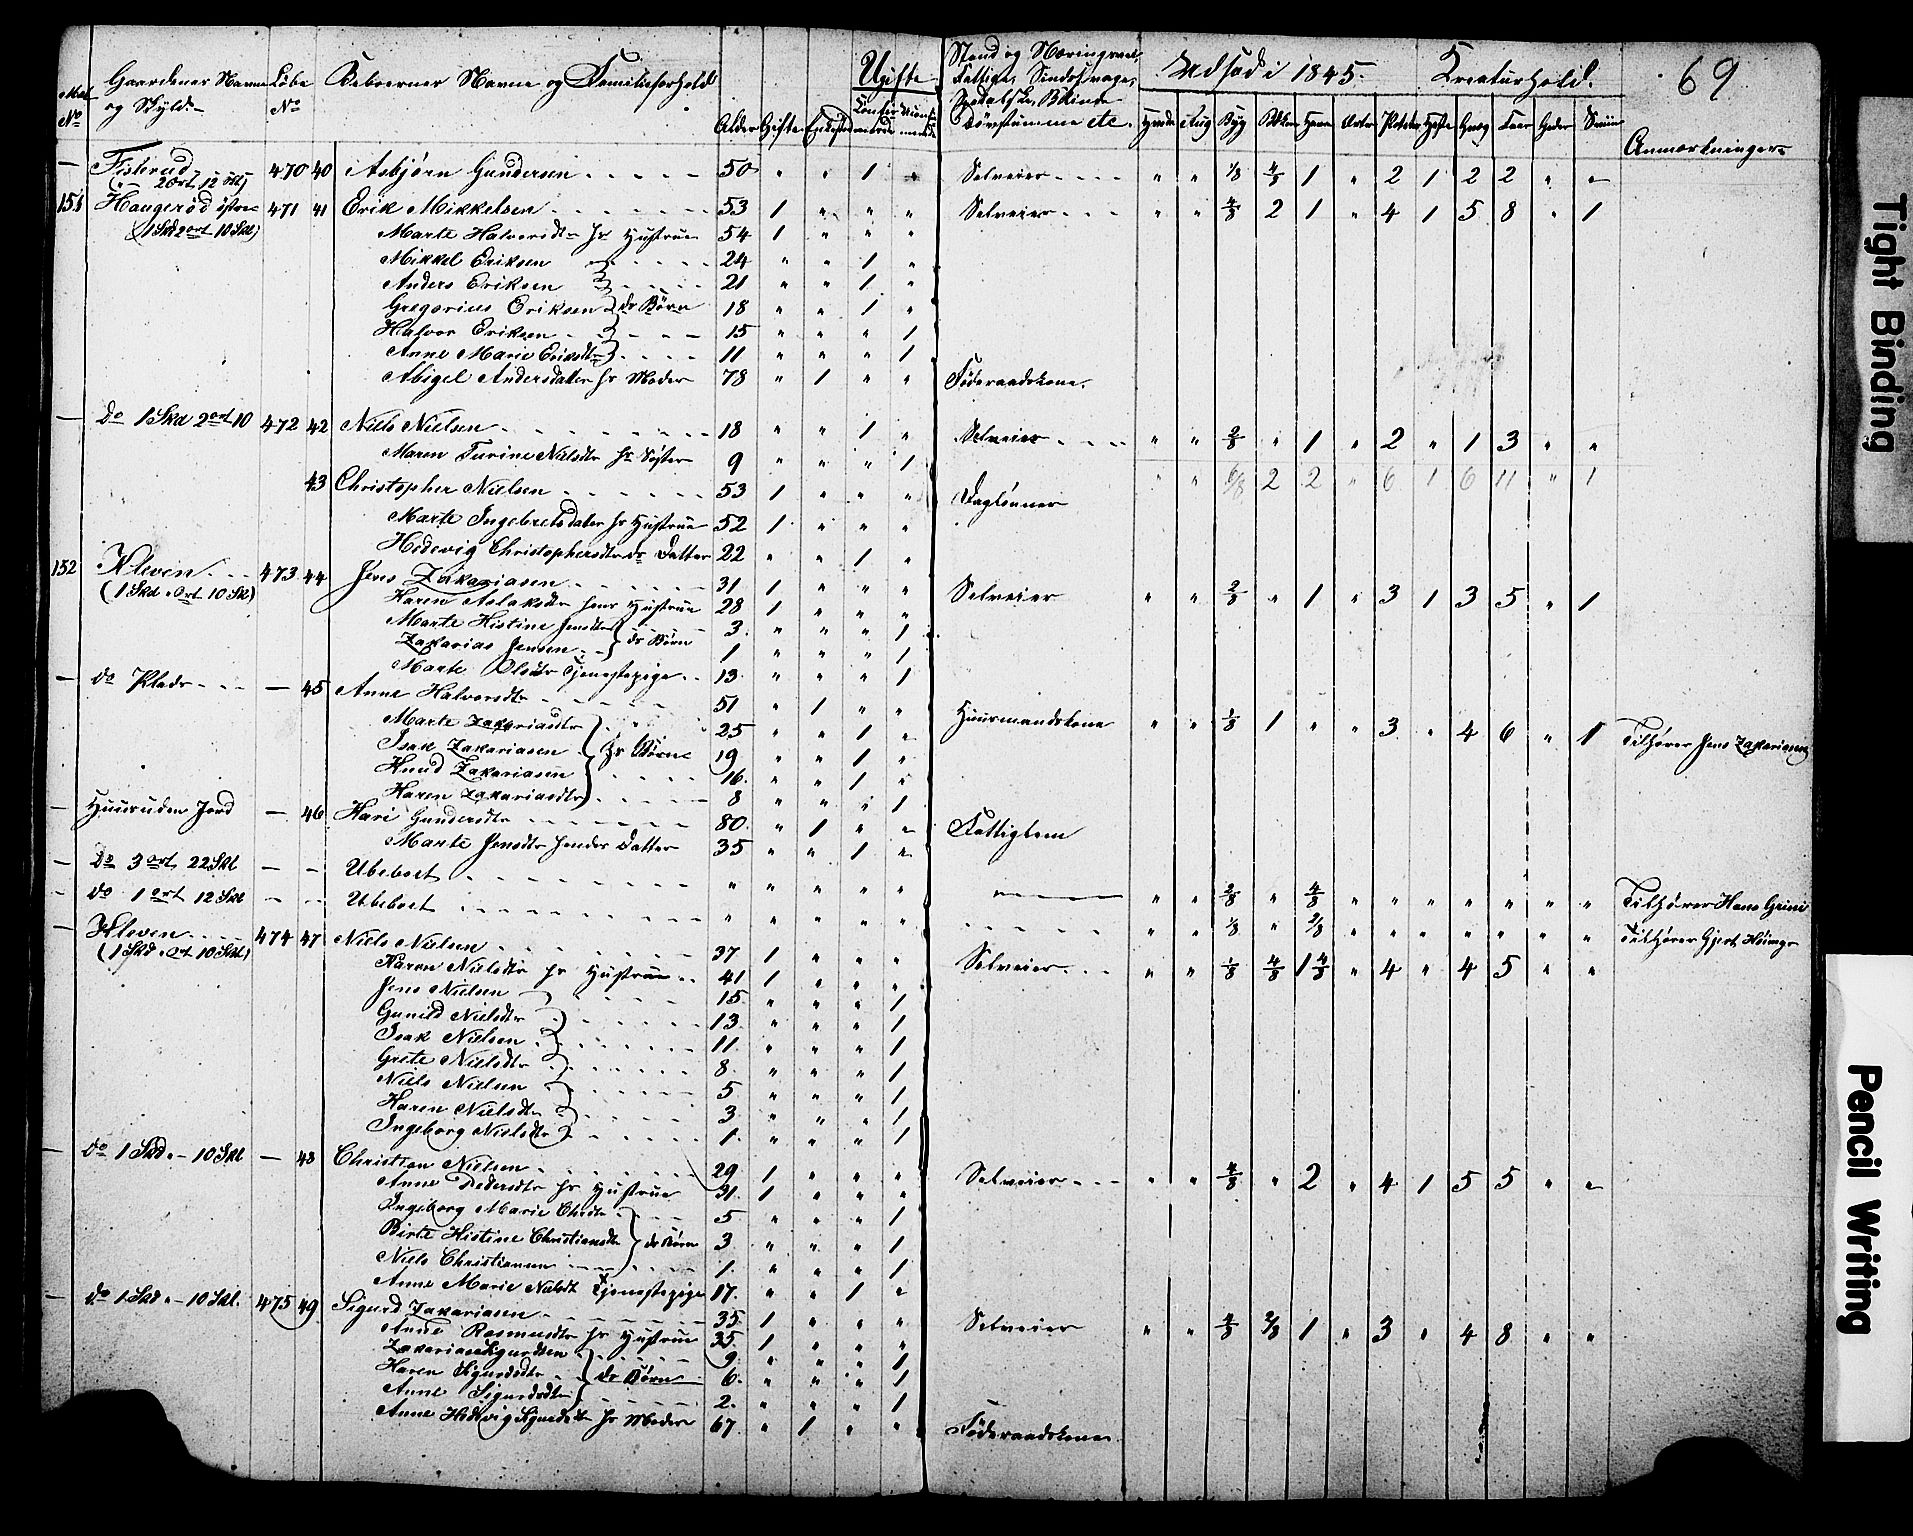 69
Mat. No Gaardenes Navne og Skyld Løbe No Beboernes Navne og Familieforhold Alder Gifte Enkestand Ugifte Stand og Næringsvei, Fattige, Sindssvage, Spedalske, Blinde Døvstumme etc. Udsæd i 1845. Kreaturhold. Anmærkninger
Hvede Rug Byg Havre Erter Poteter Heste Qvæg Faar Geder Sviin
— Fisterud 470 40 Asbjørn Gundersen 50 " " 1 " Selveier " " 1/8 4/8 1 " 2 1 2 2 " "
(" 2 ort 12 Skl)
151 Haugerød østre 471 41 Erik Mikkelsen 53 1 " " " Selveier " " 4/8 2 1 " 4 1 5 8 " 1
(1 Skd 2 ort 10 Skl)
Marte Halvorsdtr hs Hustrue 54 1 " " "
Mikkel Eriksen 24 " " 1 "
Anders Eriksen 21 " " 1 "
Gregorius Eriksen ds Børn 18 " " 1 "
Halvor Eriksen 15 " " " 1
Anne Marie Eriksdtr 11 " " " 1
Abigel Andersdatter hs Moder 78 " 1 " " Føderaadskone.
— do 1 Skd 2 ort 10 472 42 Niels Nielsen 18 " " 1 " Selveier " " 2/8 " 1 " 2 " 1 3 " "
Maren Turine Nielsdtr hs Søster 9 " " " 1
" " 6/8 2 2 " 6 1 6 11 " 1
43 Christopher Nielsen 53 1 " " " Daglønner
Marte Ingebretsdatter hs Hustrue 52 1 " " "
Hedevig Christophersdtr ds Datter 22 " " 1 "
152 Kleven 473 44 Jens Zakariasen 31 1 " " " Selveier " " 2/8 " 1 " 3 1 3 5 " 1
(1 Skd " Ort 10 Sk)
Karen Aslaksdtr hans Hustrue 28 1 " " "
Marte Kistine Jensdtr 3. " " " 1
Zakarias Jensen ds Børn 1 " " " 1
Marte Olsdtr Tjenestepige 13 " " " 1
— do Plads — 45 Anne Halvorsdtr 51 " 1 " " Huusmandskone " " 1/8 1 " " 3 " 4 6 " 1 Tilhører Jens Zakariasen
Marte Zakariasdtr 25 " " 1 "
Isak Zakariasen hs Børn 19 " " 1 "
Knud Zakariasen 16. " " 1 "
Karen Zakariasdtr 8 " " " 1
— Huus uden Jord — 46 Kari Gundersdtr 80. " 1 " " Fattiglem
Marte Jensdtr hendes Datter 35 " " 1 "
— Do 3 ort 22 Skl — — Ubeboet " " " " " — " " 2/8 " 4/8 " " " " " " " Tilhører Hans Grini
— do 1 ort 12 Skl — — Ubeboet " " " " " " " 1/8 " 2/8 " " " " " " " Tilhører Gjert
— Kleven 474 47 Niels Nielsen 37 1 " " " Selveier " " 1/8 4/8 1 4/8 " 4 " 4 5 " "
(1 Skd " Ort 10 Skl)
Karen Nielsdtr hs Hustrue 41 1 " " "
Jens Nielsen 15. " " " 1
Gunild Nielsdtr 13. " " " 1
Isak Nielsen 11. " " " 1
Grete Nielsdtr 8. " " " 1
Niels Nielsen 5 " " " 1
Karen Nielsdtr 3. " " " 1
Ingeborg Nielsdtr 1. " " " 1
— do 1 Skd " — 10 Skl — 48 Christian Nielsen 29 1 " " " Selveier " " 4/8 " 2 " 4 1 5 5 " "
Anne Pedersdtr hs Hustrue 31. 1 " " "
Ingeborg Marie Christ 5 " " " 1
Birte Kistine Christiansdtr ds Børn 3 " " " 1
Niels Christiansen 1. " " " 1
Anne Marie Nielsdt Tjenestepige 17. " " 1 "
— do 1 Skd " — 10 Skl. 475 49 Sigurd Zakariasen 35. 1 " " " Selveier " " 4/8 2/8 1 " 3 " 4 8 " "
Anne Rasmusdtr hs Hustrue 35. 1 " " "
Zakarias Sigurdsen 9. " " " 1
Karen Sigurdsdtr ds Børn 6. " " " 1
Anne Sigurdsdtr 2. " " " 1
Anne Hedvig Sigurdsdtr hs Moder 67 " 1 " " Føderaadskone.
Tight Binding
Pencil Writing